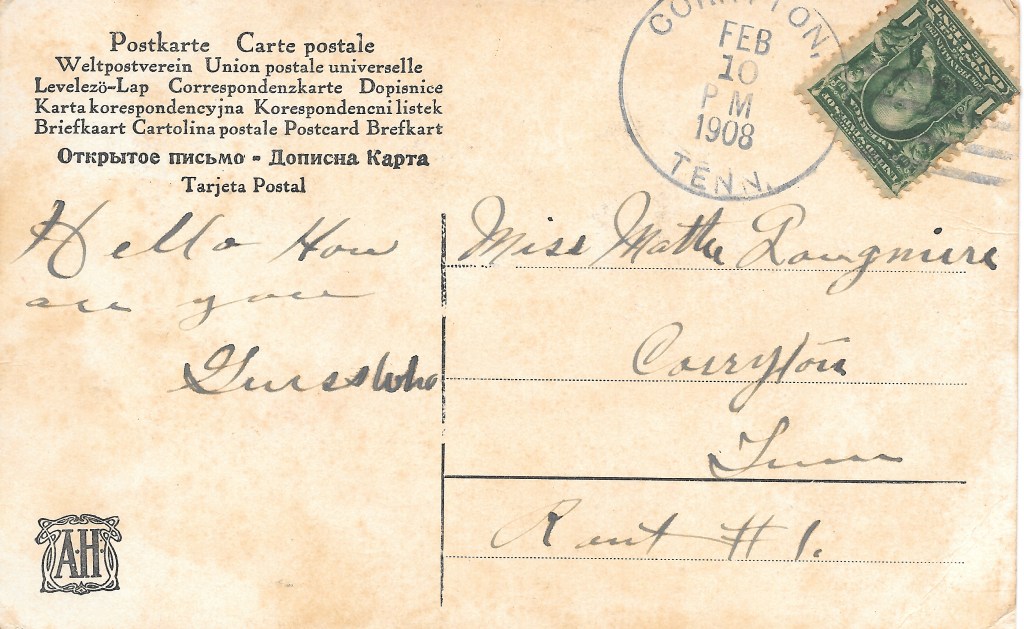 Postkarte Carte postale
Weltpostverein Union postale universelle
Levelezö-Lap Correspondenzkarte Dopisnice
Karta korespondencyjna Korespondencni listek
Briefkaart Cartolina postale Postcard Brefkart
Открытое письмо - Дописна Карта
Tarjeta Postal
FEB
10
P M
1908
TENN.
1 1
Hello How
are you
Guess Who
Miss Mattie Longmire
Corryton
Tenn
Rout # 1.
A.H.